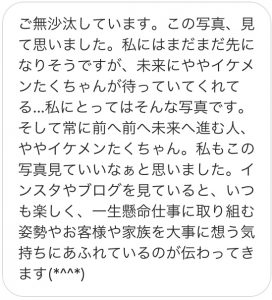 ご無沙汰しています。この写真、見
て思いました。私にはまだまだ先に
なりそうですが、未来にややイケメ
ンたくちゃんが待っていてくれて
る...私にとってはそんな写真です。
そして常に前へ前へ未来へ進む人、
ややイケメンたくちゃん。私もこの
写真見ていいなぁと思いました。イ
ンスタやブログを見ていると、いつ
も楽しく、一生懸命仕事に取り組む
姿勢やお客様や家族を大事に想う気
持ちにあふれているのが伝わってき
ます(*^^*)